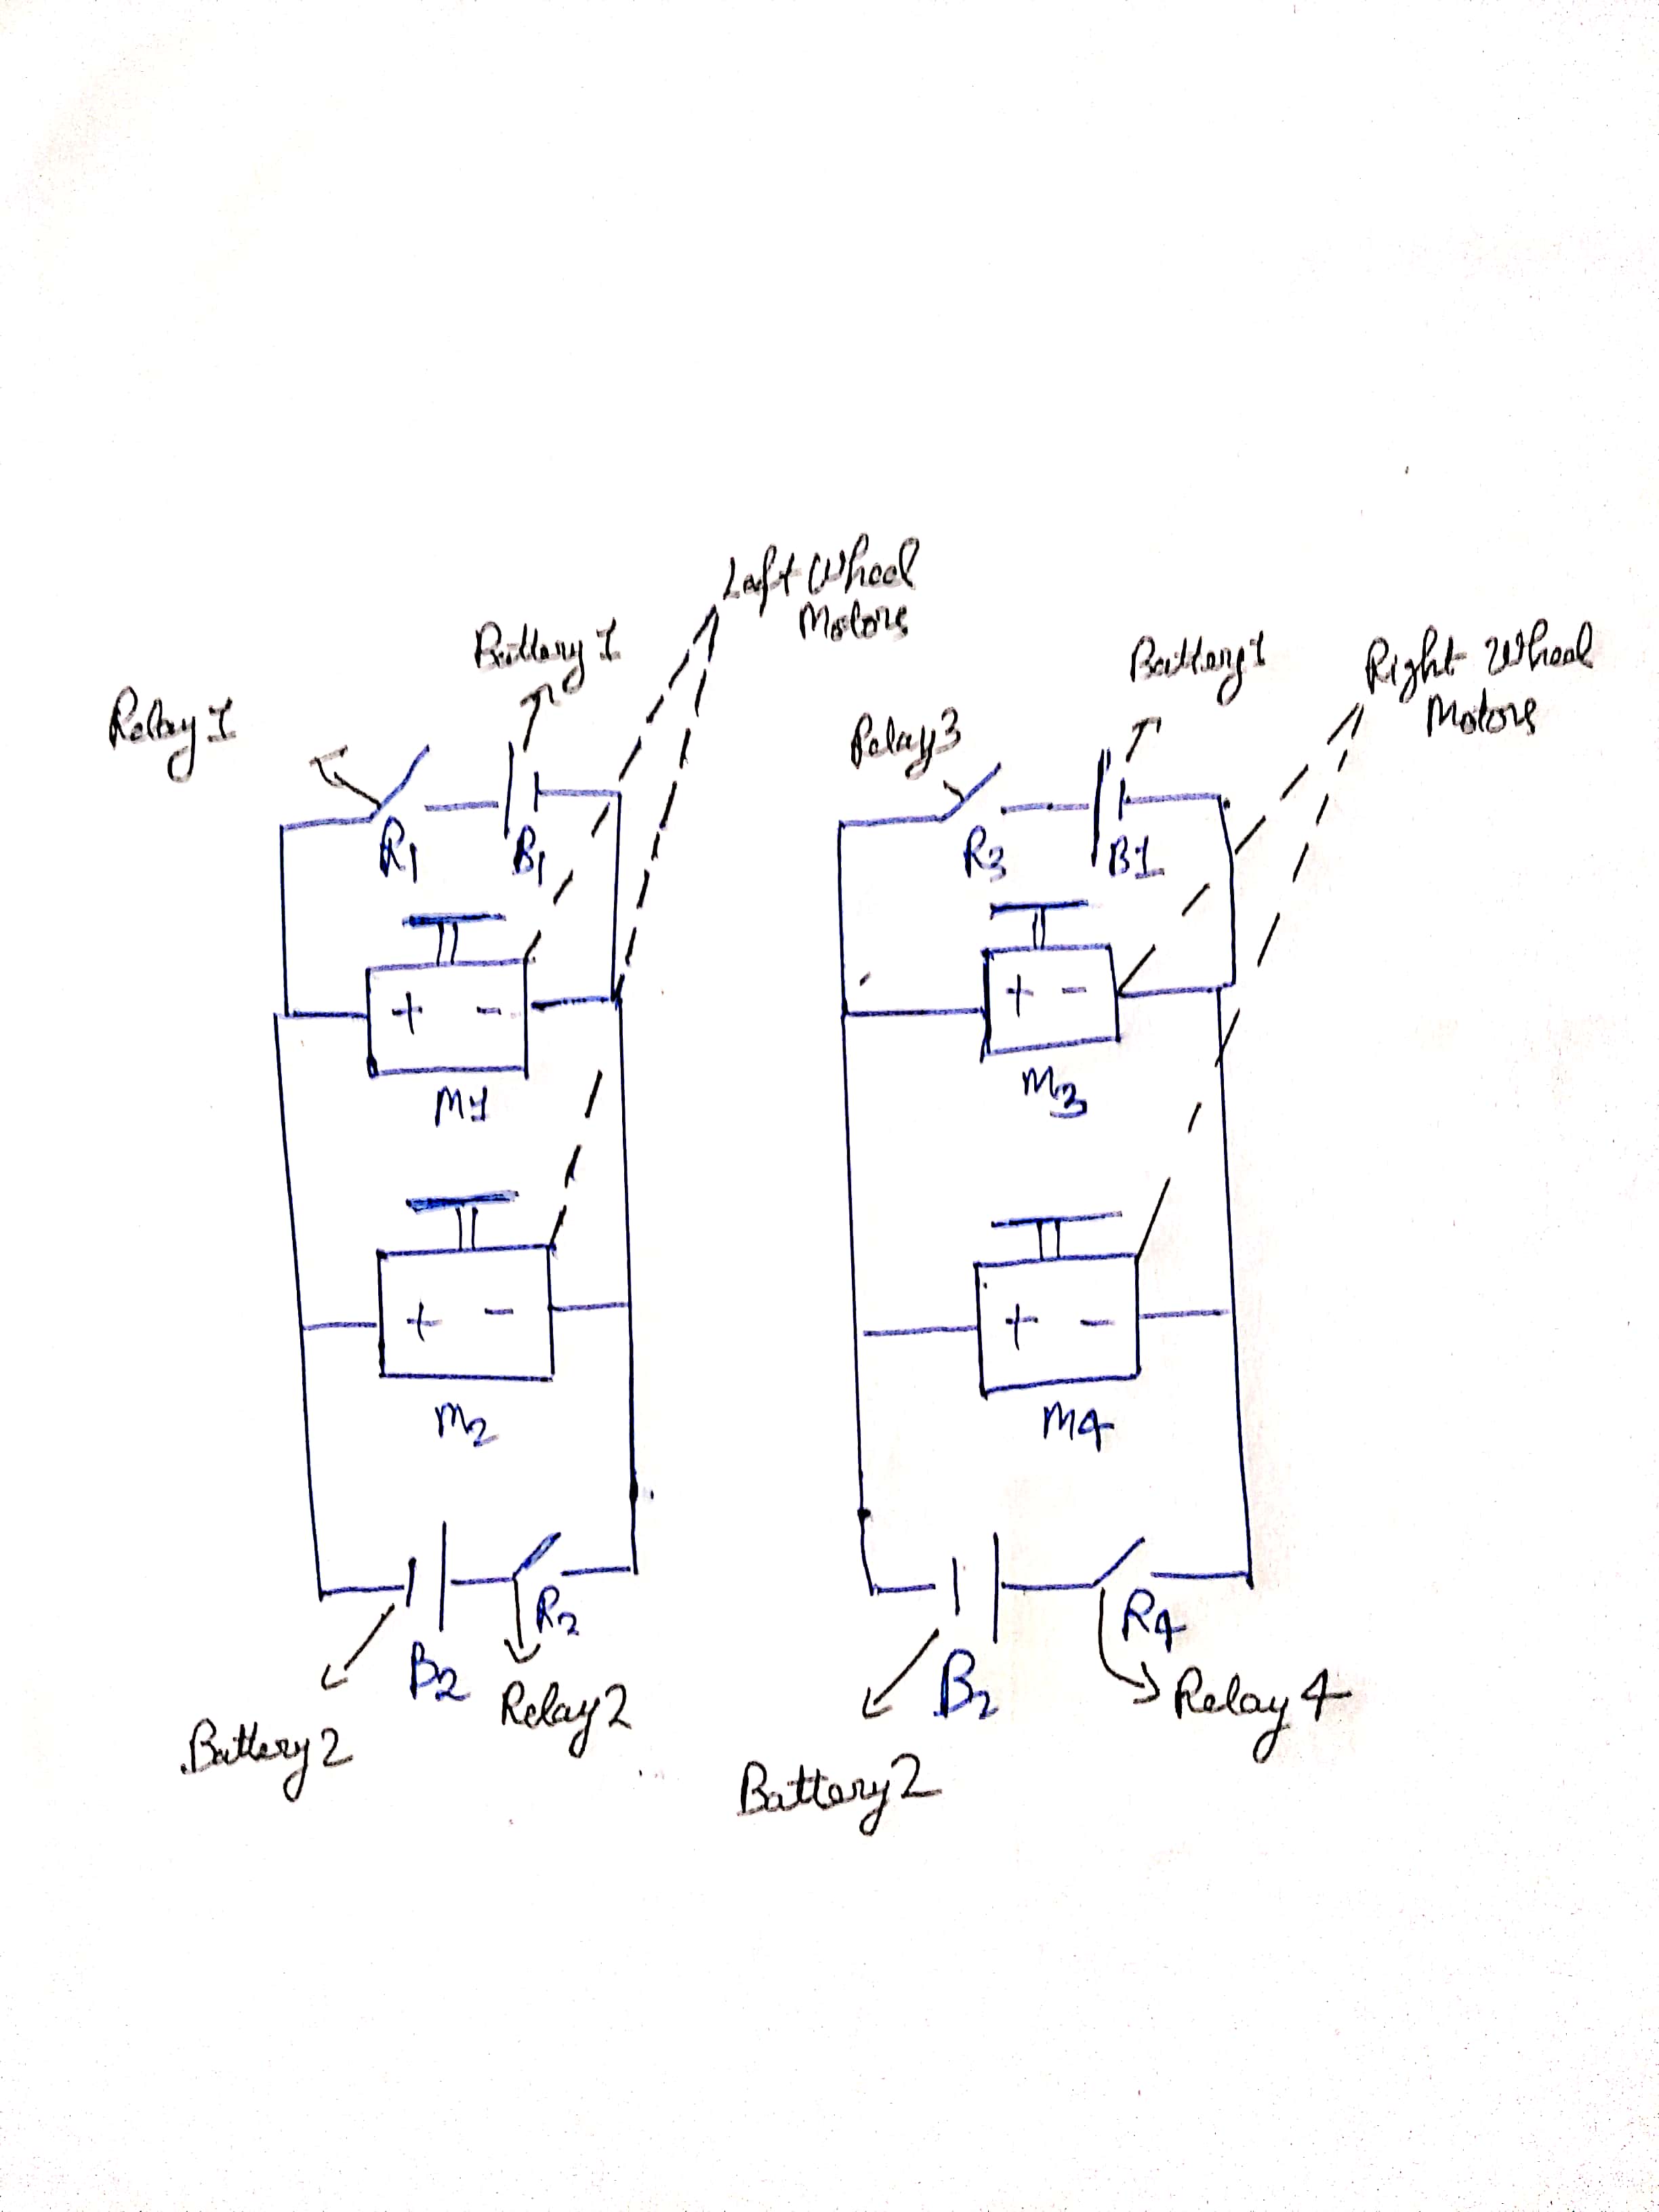 Left Wheel
Motors
Battery 1
Relay 1
R1
B1
+ -
M1
+ -
M2
B2
R2
Relay 2
Battery 2
Battery 1
Right Wheel
Motors
Relay 3
R3
B1
+ -
M3
+ -
M4
B2
R4
Relay 4
Battery 2